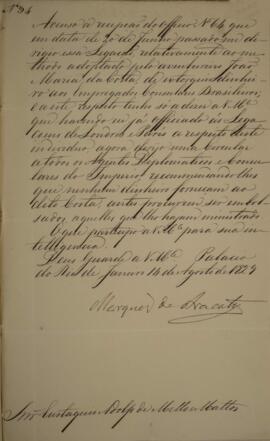 Nº 34
Accuso a recepção do officio Nº 64 que
em data de 20 de Junho passado me di-
rigio essa Legação, relativamente ao me-
thodo adoptado pelo aventureiro João
Maria da Costa, de extorquir dinhei-
ro aos Empregados Consulares Brasileiros;
e a este respeito tenho só a dizer a V. Mce
que havendo eu já officiado ás Lega-
ções de Londres e Paris a respeito deste
individuo, agora dirijo uma Circular
a todos os Agentes Diplomaticos e Consu-
lares do Imperio, recommendando-lhes
que nenhum dinheiro forneçam ao
dito Costa, antes procurem ser embol-
sados aquelles que lho hajam ministrado.
O que participo a V. Mce para sua in-
telligencia.
Deos Guarde a V. Mce Palacio
do Rio de Janeiro 14 de Agosto de 1829
Marquez de Aracaty
Snr. Eustaquio Adolfo de Mello Mattos